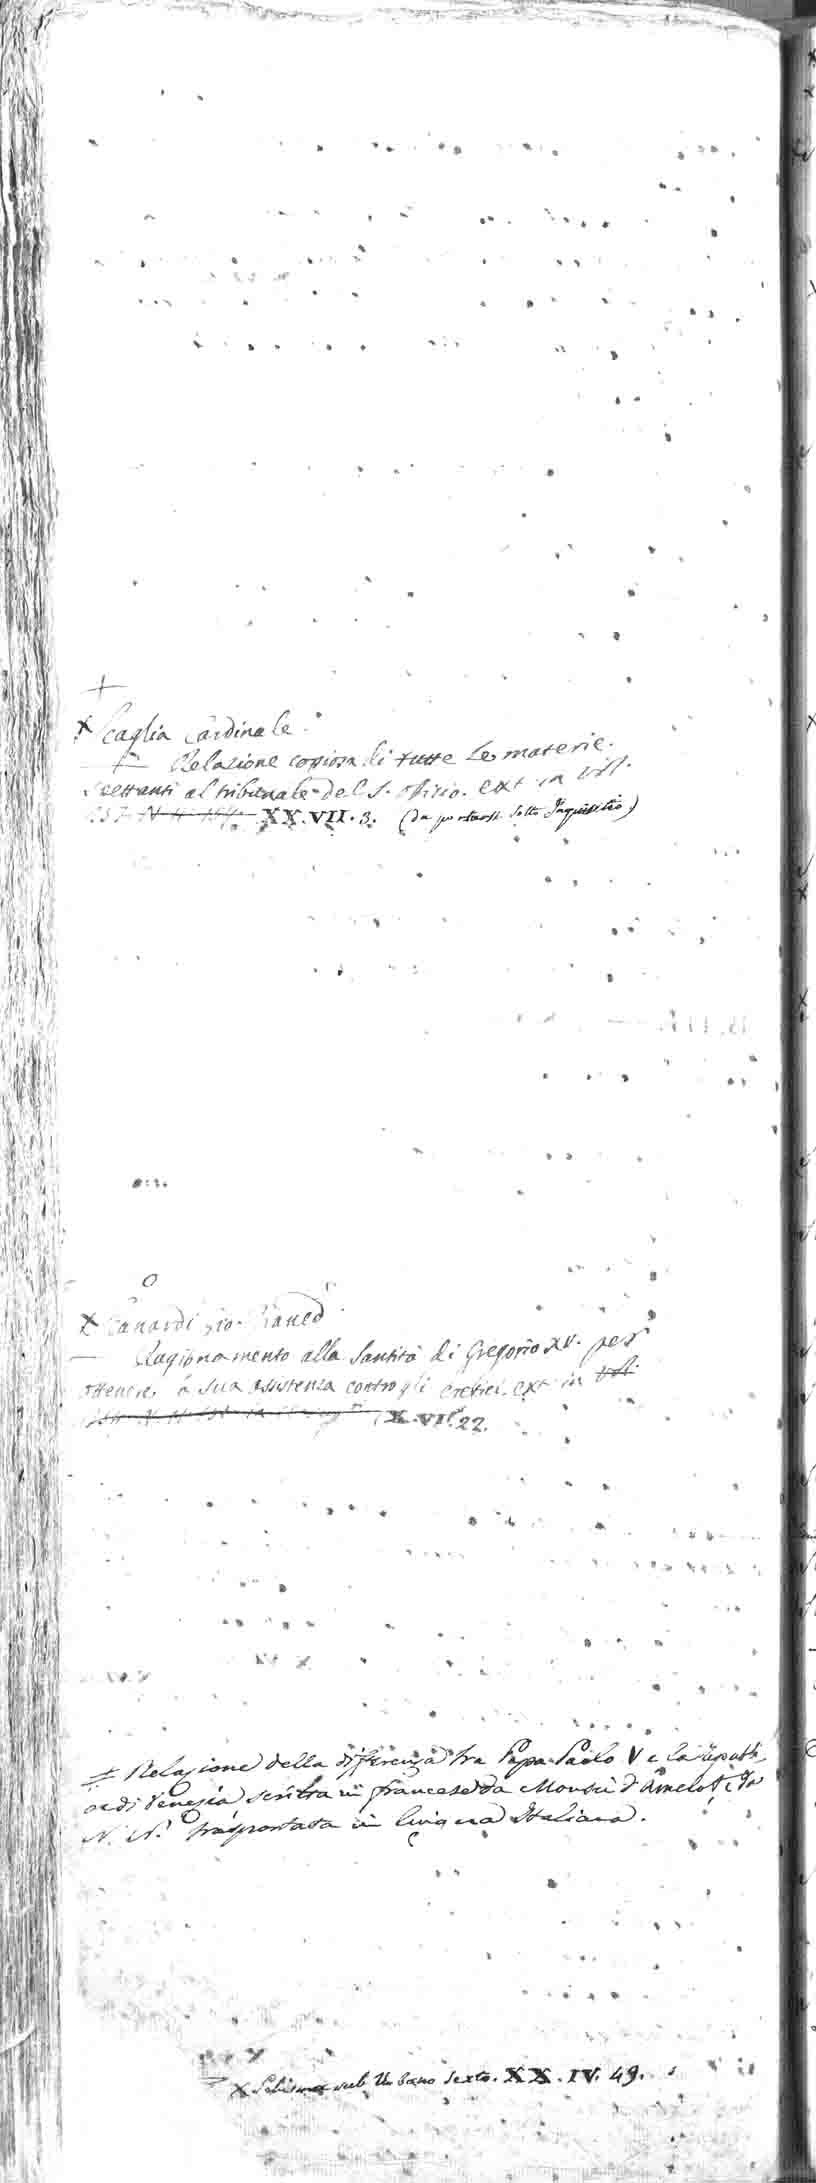 +
X Scaglia Cardinale.
+ Relazione copiosa di tutte le materie
spettanti al tribunale del S. Ofizio. ext in vol.
XX.VII.3. (da portarsi sotto Inquisitio)
o
X
— Ragionamento alla Santità di Gregorio XV. per
ottenere la sua assistenza contro gli eretici. ext in vol.
X.VI.22.
+ Relazione della differenza tra Papa Paolo V e la Republi
ca di Venezia scritta in francese da Monsù d'Amelot, e da
N. N. trasportata in lingua Italiana.
X Schisma sub Urbano Sexto. XX.IV.49.